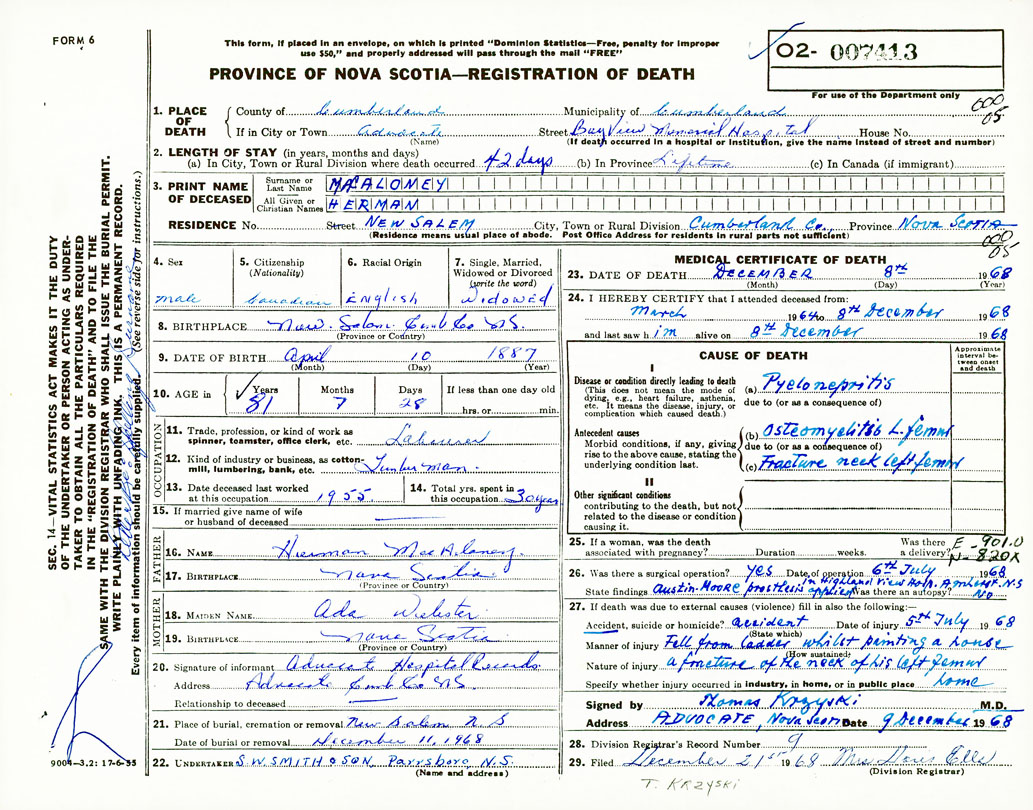 FORM 6
This form, if placed in an envelope, on which is printed "Dominion Statistics—Free, penalty for improper
use $50," and properly addressed will pass through the mail "FREE"
PROVINCE OF NOVA SCOTIA—REGISTRATION OF DEATH
O2- 007413
For use of the Department only
000
05
1. PLACE OF DEATH
County of Cumberland Municipality of Cumberland
If in City or Town Advocate Street Bay View Memorial Hospital House No.
(Name) (If death occurred in a hospital or institution, give the name instead of street and number)
2. LENGTH OF STAY (in years, months and days)
(a) In City, Town or Rural Division where death occurred 42 days (b) In Province Lifetime (c) In Canada (if immigrant)
3. PRINT NAME OF DECEASED
Surname or Last Name MACALONEY
All Given or Christian Names HERMAN
RESIDENCE No. Street NEW SALEM City, Town or Rural Division Cumberland Co., Province NOVA SCOTIA
(Residence means usual place of abode. Post Office Address for residents in rural parts not sufficient)
000
05
4. Sex male
5. Citizenship (Nationality) Canadian
6. Racial Origin English
7. Single, Married, Widowed or Divorced (write the word) Widowed
8. BIRTHPLACE New Salem Cumb Co NS.
(Province or Country)
9. DATE OF BIRTH April 10 1887
(Month) (Day) (Year)
10. AGE in Years 81 Months 7 Days 28 If less than one day old hrs. or min.
OCCUPATION
11. Trade, profession, or kind of work as spinner, teamster, office clerk, etc. Labourer
12. Kind of industry or business, as cotton-mill, lumbering, bank, etc. Lumber man.
13. Date deceased last worked at this occupation 1955
14. Total yrs. spent in this occupation 30 years
15. If married give name of wife or husband of deceased —
FATHER
16. NAME Hierman MacAloney.
17. BIRTHPLACE Nova Scotia
(Province or Country)
MOTHER
18. MAIDEN NAME Ada Webster
19. BIRTHPLACE Nova Scotia
(Province or Country)
20. Signature of informant Advocate Hospital Records
Address Advocate Cumb Co NS.
Relationship to deceased —
21. Place of burial, cremation or removal New Salem N.S
Date of burial or removal December 11, 1968
22. UNDERTAKER S.W. SMITH & SON, Parrsboro, N.S.
(Name and address)
MEDICAL CERTIFICATE OF DEATH
23. DATE OF DEATH DECEMBER 8th 1968
(Month) (Day) (Year)
24. I HEREBY CERTIFY that I attended deceased from:
March 1964 to 8th December 1968
and last saw him alive on 8th December 1968
CAUSE OF DEATH
Approximate interval between onset and death
I
Disease or condition directly leading to death
(This does not mean the mode of dying, e.g., heart failure, asthenia, etc. It means the disease, injury, or complication which caused death.)
(a) Pyelonepritis
due to (or as a consequence of)
Antecedent causes
Morbid conditions, if any, giving rise to the above cause, stating the underlying condition last.
(b) Osteomyelitis L. femur
due to (or as a consequence of)
(c) Fracture neck left femur
II
Other significant conditions
contributing to the death, but not related to the disease or condition causing it.
25. If a woman, was the death associated with pregnancy? Duration weeks. Was there a delivery?
E-901.0
N-820X
26. Was there a surgical operation? yes Date of operation 6th July 1968
in Highland View Hosp. Amherst. N.S
State findings Austin-Moore prosthesis applied Was there an autopsy? NO
27. If death was due to external causes (violence) fill in also the following:—
Accident, suicide or homicide? accident Date of injury 5th July 1968
(State which)
Manner of injury Fell from ladder whilst painting a house
(How sustained)
Nature of injury a fracture of the neck of his left femur
Specify whether injury occurred in industry, in home, or in public place home
Signed by Thomas Krzyski M.D.
Address ADVOCATE, Nova Scotia Date 9 December 1968
28. Division Registrar's Record Number 9
29. Filed December 21st 1968 Mrs Doris Ells
(Division Registrar)
T. KRZYSKI
SEC. 14—VITAL STATISTICS ACT MAKES IT THE DUTY
OF THE UNDERTAKER OR PERSON ACTING AS UNDER-
TAKER TO OBTAIN ALL THE PARTICULARS REQUIRED
IN THE "REGISTRATION OF DEATH" AND TO FILE THE
SAME WITH THE DIVISION REGISTRAR WHO SHALL ISSUE THE BURIAL PERMIT.
WRITE PLAINLY WITH UNFADING INK. THIS IS A PERMANENT RECORD.
Every item of information should be carefully supplied. (See reverse side for instructions.)
9004—3.2: 17-6-55